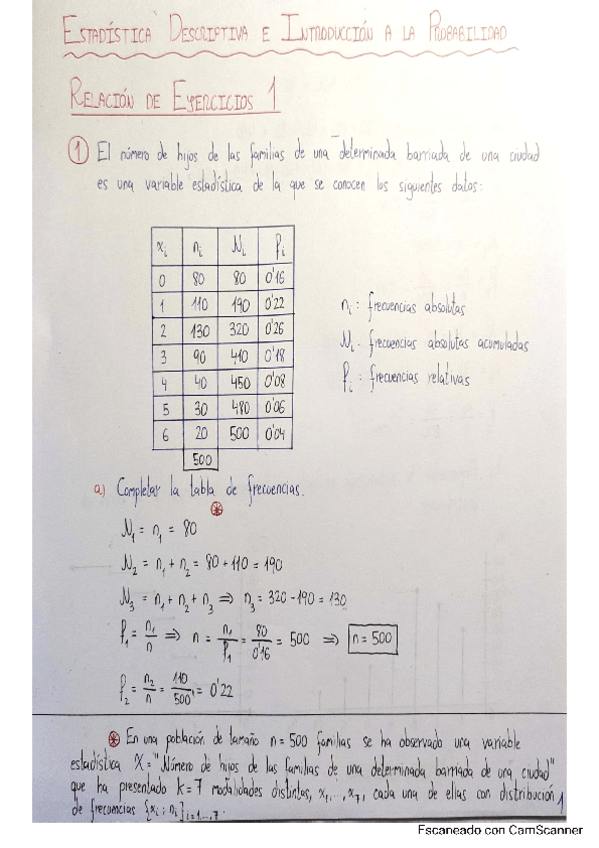 ESTADÍSTICA DESCRIPTIVA E INTRODUCCIÓN A LA PROBABILIDAD
RELACIÓN DE EJERCICIOS 1
① El número de hijos de las familias de una determinada barriada de una ciudad
es una variable estadística de la que se conocen los siguientes datos:
xi ni Ni fi
0 80 80 0'16
1 110 190 0'22
2 130 320 0'26
3 90 410 0'18
4 40 450 0'08
5 30 480 0'06
6 20 500 0'04
500
ni : frecuencias absolutas
Ni : frecuencias absolutas acumuladas
fi : frecuencias relativas
a) Completar la tabla de frecuencias.
⊛
N₁ = n₁ = 80
N₂ = n₁ + n₂ = 80 + 110 = 190
N₃ = n₁ + n₂ + n₃ ⇒ n₃ = 320 - 190 = 130
f₁ = n₁/n ⇒ n = n₁/f₁ = 80/0'16 = 500 ⇒ n = 500
f₂ = n₂/n = 110/500 = 0'22
⊛ En una población de tamaño n = 500 familias se ha observado una variable
estadística X = "Número de hijos de las familias de una determinada barriada de una ciudad"
que ha presentado k = 7 modalidades distintas, x₁,...,x₇, cada una de ellas con distribución
de frecuencias {xi ; ni}i=1,...,7.
1
Escaneado con CamScanner